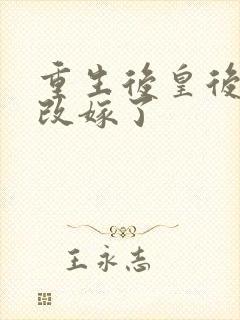 重生後皇後
改嫁了
王永志